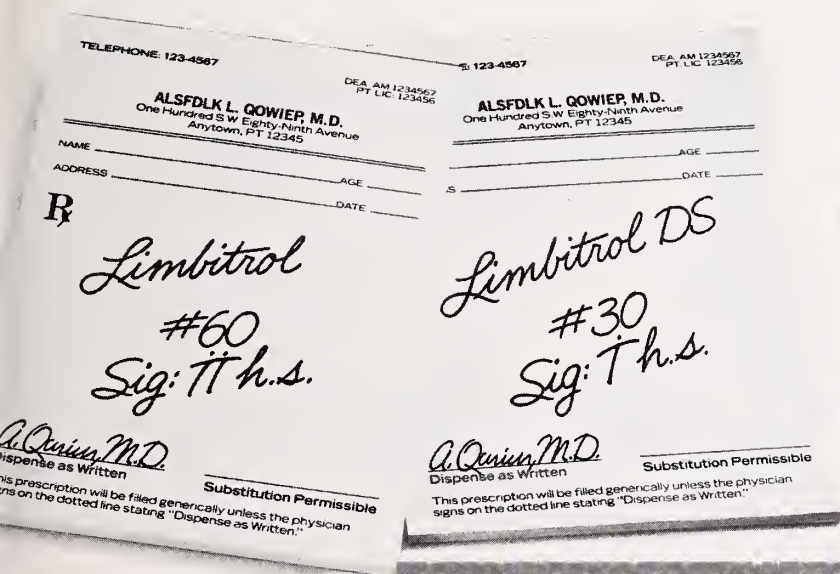 TELEPHONE: 123-4567
DEA. AM 1234567
PT LIC: 123456
ALSFDLK L. QOWIEP, M.D.
One Hundred S.W Eighty-Ninth Avenue
Anytown, PT 12345
NAME
AGE
ADDRESS
DATE
Rx
Limbitrol
#60
Sig: II h.s.
A. Qurius, M.D.
Dispense as Written
Substitution Permissible
his prescription will be filled generically unless the physician
gns on the dotted line stating "Dispense as Written."
E: 123-4567
DEA. AM 1234567
PT. LIC 123456
ALSFDLK L. QOWIEP, M.D.
One Hundred S.W Eighty-Ninth Avenue
Anytown, PT 12345
AGE
S
DATE
Limbitrol DS
#30
Sig: I h.s.
A. Qurius, M.D.
Dispense as Written
Substitution Permissible
This prescription will be filled generically unless the physician
signs on the dotted line stating "Dispense as Written."